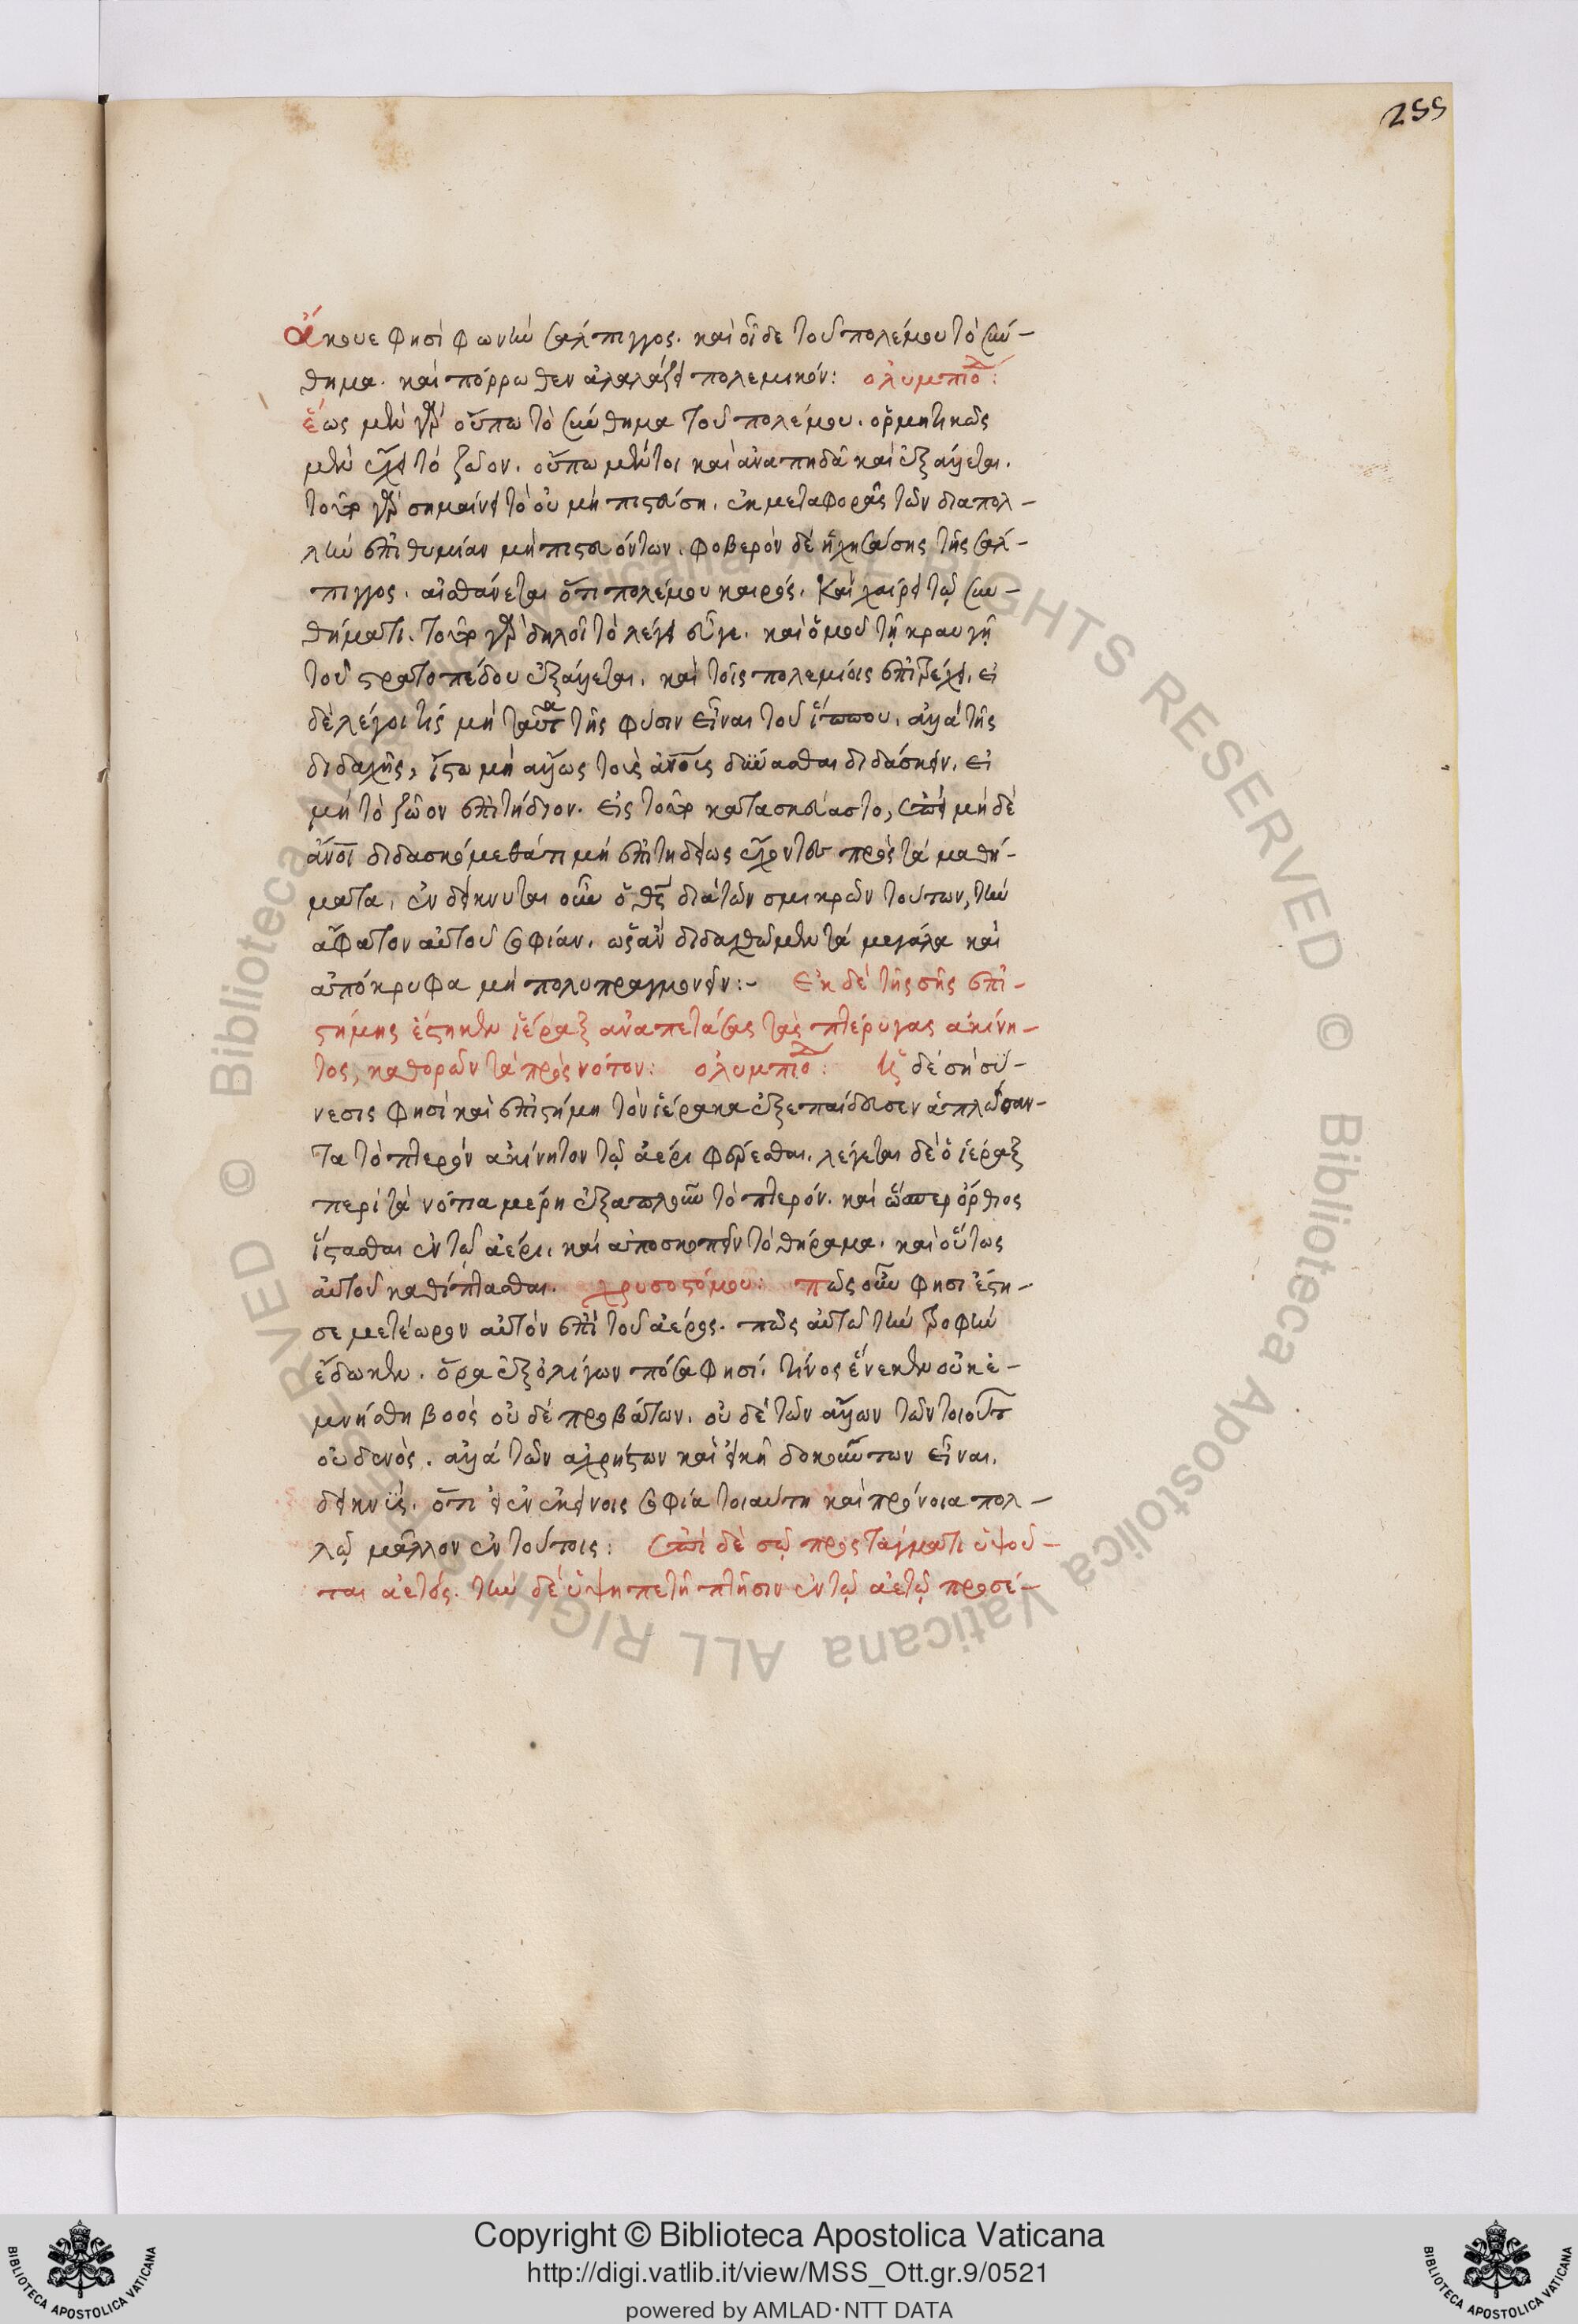 255
ἄκουε φησὶ φωνὴν σάλπιγγος. καὶ οἶδε τοῦ πολέμου τὸ σύν-
θημα. καὶ πόρρωθεν ἀλαλάζει πολεμικόν: ὀλυμπιοδ:
ἕως μὲν γὰρ οὔπω τὸ σύνθημα τοῦ πολέμου. ὁρμητικῶς
μὲν ἔχει τὸ ζῶον. οὔπω μέντοι καὶ ἀναπηδᾶ καὶ ἐξάλλεται.
τοῦτο γὰρ σημαίνει τὸ οὐ μὴ πιστεύση. ἐκ μεταφορᾶς τῶν διὰ πολ-
λὴν ἐπιθυμίαν μὴ πιστευόντων. φοβερὸν δὲ ἠχησάσης τῆς σάλ-
πιγγος. αἰσθάνεται ὅτι πολέμου καιρός. καὶ χαίρει τῷ συν-
θήματι. τοῦτο γὰρ δηλοῖ τὸ λέγει εὖγε. καὶ ὁμοῦ τῇ κραυγῇ
τοῦ στρατοπέδου ἐξάλλεται. καὶ τοῖς πολεμίοις ἐπιτρέχει. εἰ
δὲ λέγοι τίς μὴ ταῦτα τῆς φύσιν εἶναι τοῦ ἵππου. ἀλλὰ τῆς
διδαχῆς, ἴστω μὴ ἄλλως τοὺς ἀνους δύνασθαι διδάσκειν. εἰ
μὴ τὸ ζῶον ἐπιτήδειον. εἰς τοῦτο κατασκεύαστο, ἐπεὶ μηδὲ
ἄνοι διδασκόμεθά τι μὴ ἐπιτηδείως ἔχοντες πρὸς τὰ μαθή-
ματα. ἐνδείκνυται οὖν ὁ θς διὰ τῶν σμικρῶν τούτων, τὴν
ἄφατον αὐτοῦ σοφίαν. ὡς ἂν διδαχθῶμεν τὰ μεγάλα καὶ
ἀπόκρυφα μὴ πολυπραγμονεῖν:- Ἐκ δὲ τῆς σῆς ἐπι-
στήμης ἕστηκεν ἱέραξ ἀναπετάσας τὰς πτέρυγας ἀκίνη-
τος, καθορῶν τὰ πρὸς νότον: ὀλυμπιοδ: τίς δὲ σὴ σύ-
νεσις φησὶ καὶ ἐπιστήμη τὸν ἱέρακα ἐξεπαίδευσεν ἁπλώσαν-
τα τὸ πτερὸν ἀκίνητον τῷ ἀέρι φέρεσθαι. λέγεται δὲ ὁ ἱέραξ
περὶ τὰ νότια μέρη ἐξαπλοῦν τὸ πτερόν. καὶ ὥσπερ ὄρθιος
ἵστασθαι ἐν τῷ ἀέρι. καὶ ἀποσκοπεῖν τὸ θήραμα. καὶ οὕτως
αὐτοῦ καθίπτασθαι. χρυσοστόμου: πῶς οὖν φησι ἔστη-
σε μετέωρον αὐτὸν ἐπὶ τοῦ ἀέρος. πῶς αὐτῶ τὴν τροφὴν
ἔδωκεν. ὅρα ἐξ ὀλίγων πόσα φησί. τίνος ἕνεκεν οὐκ ἐ-
μνήσθη βοὸς οὐδὲ προβάτων. οὐδὲ τῶν ἄλλων τῶν τοιούτ
οὐδενὸς. ἀλλὰ τῶν ἀχρήστων καὶ εἰκῆ δοκούντων εἶναι.
δεικνὺς. ὅτι εἰ ἐν ἐκείνοις σοφία τοιαύτη καὶ πρόνοια πολ-
λῷ μᾶλλον ἐν τούτοις: Ἐπὶ δὲ σῷ προστάγματι ὑψοῦ-
ται ἀετός. τὴν δὲ ὑψηπετῆ πτῆσιν ἐν τῷ ἀετῷ προσέ-
Copyright © Biblioteca Apostolica Vaticana
http://digi.vatlib.it/view/MSS_Ott.gr.9/0521
powered by AMLAD·NTT DATA